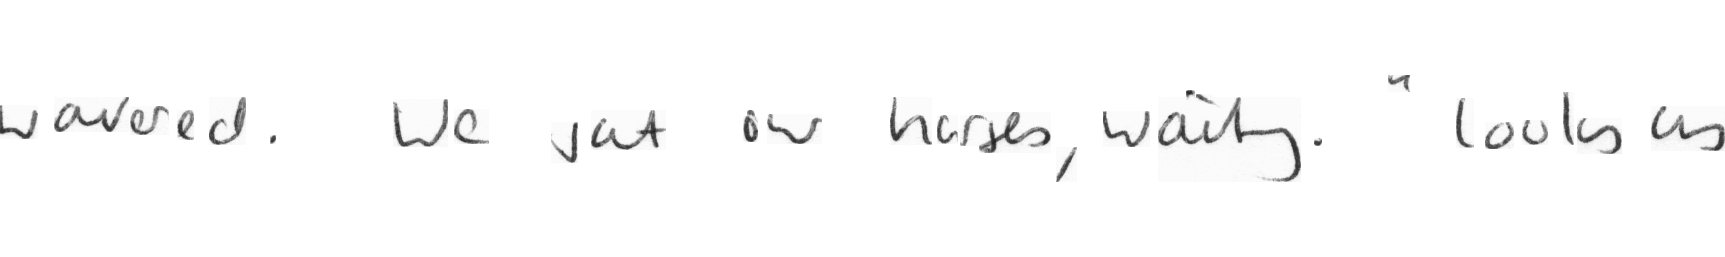 wavered. We sat our horses, waiting. " looks as